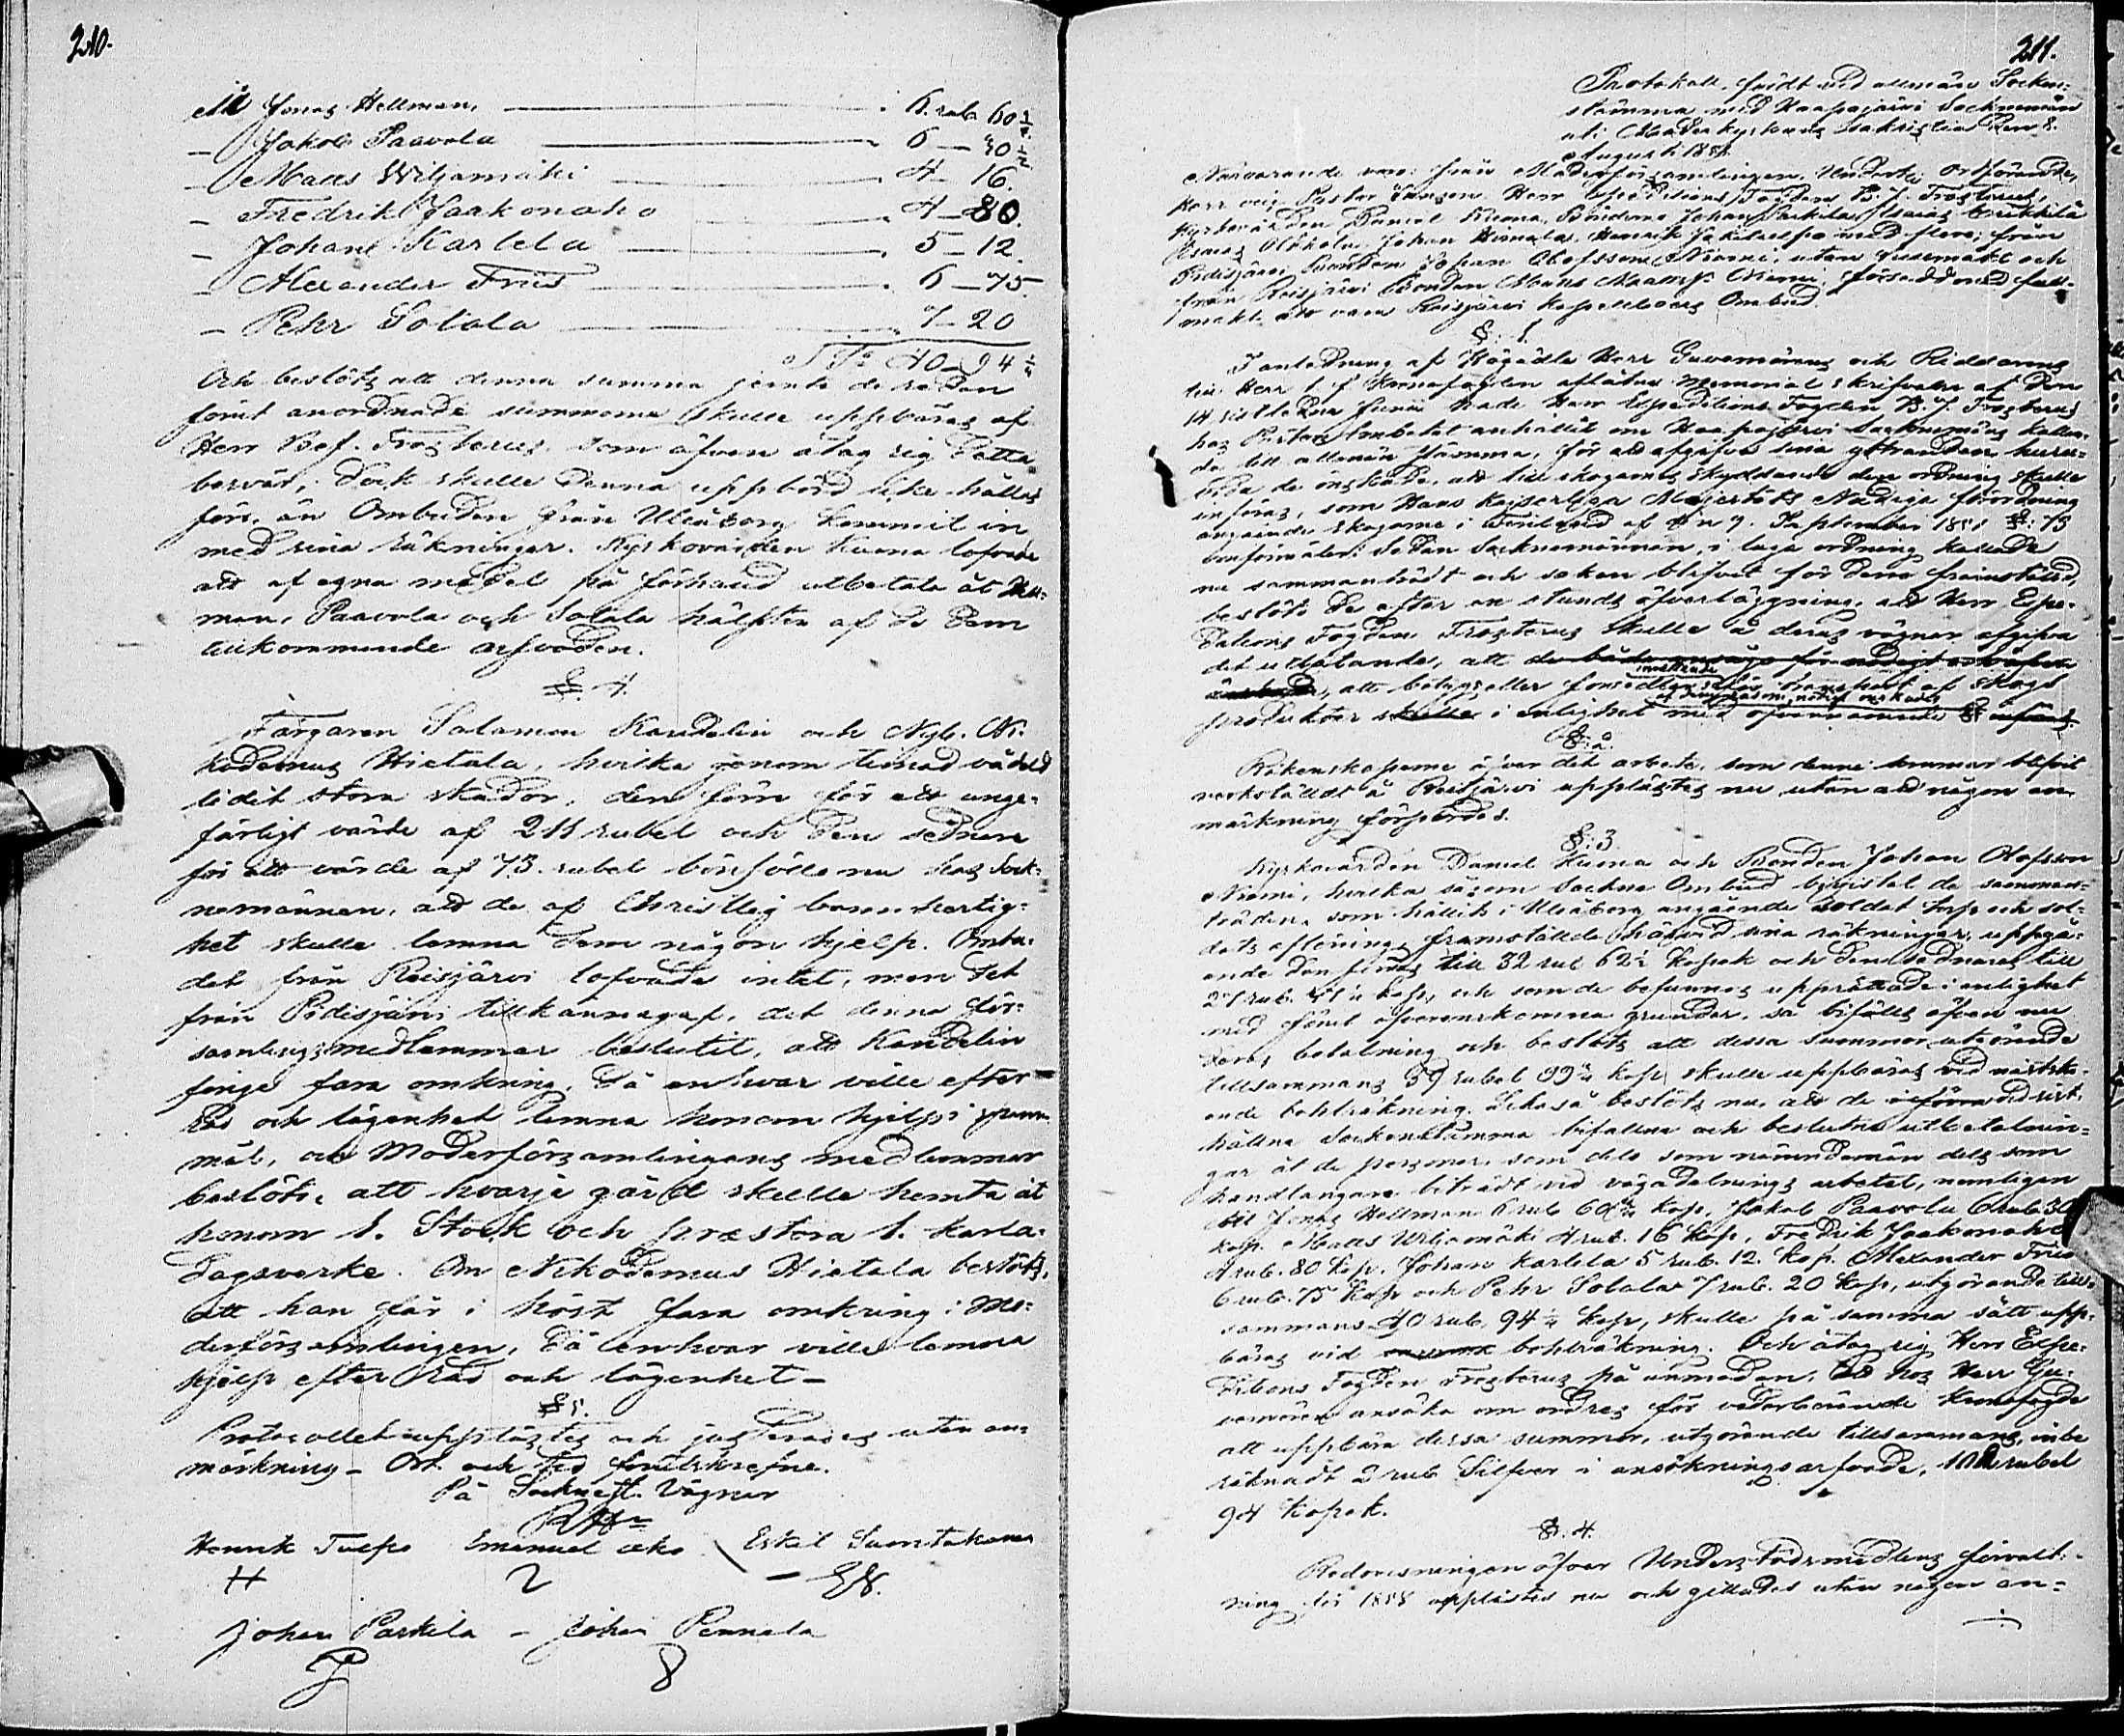 210.
Åt Jonas Hellman, 6. rub. 60 3/4.
- Jakob Paavola 6 — 30 1/2
- Matts Wiljamäki 4 — 16.
- Fredrik Jaakonaho 4 — 80.
- Johan Karlela 5 — 12.
- Alexander Friis 6 — 75.
- Pehr Solala 7 — 20
S:a 40 — 94 1/4
Och beslöts att denna summa jemte de redan
förut anordnade summorna skulle uppbäras af
Herr Bef. Frosterus, som äfven åtog sig detta
besvär; dock skulle denna uppbörd icke hållas
förr, än Ombuden från Uleåborg kommit in
med sina räkningar. Kyrkovärden Kuona lofvade
att af egna medel på förhand utbetala åt Hell-
man, Paavola och Solala hälften af de dem
tillkommande arfvoden.
§. 4.
Färgaren Salamon Kandelin och Nyb. Ni-
kodemus Hietala, hvilka genom timad vådeld
lidit stora skador, den förre för ett unge-
färligt värde af 211 rubel och den sednare
för ett värde af 73. rubel bönföllo nu hos Sock-
nemännen, att de af Christlig barmhertig-
het skulle lemna dem någon hjelp. Ombu-
det från Reisjärvi lofvade intet, men det
från Pidisjärvi tillkännagaf, det denna för-
samlings medlemmar beslutit, att Kandelin
finge fara omkring, då enhvar ville efter
Råd och lägenhet lemna honom hjelp i spanne-
mål, och Moderförsamlingens medlemmar
beslöto, att hvarje gård skulle hemta åt
honom 1. Stock och præstera 1. karla-
dagsverke. Om Nikodemus Hietala beslöts,
att han får i höst fara omkring i Mo-
derförsamlingen, då enhvar ville lemna
hjelp efter Råd och lägenhet —
§ 5.
Protocollet upplästes och justerades utan an-
märkning — Ort och tid förutskrefne.
På Socknest. Vägnar
Henrik Tuepo Emanuel Eskil Suontakanen
H 2 — ES.
Johan Parkila — Johan Pennala
P 8
211.
Protokoll, fördt vid allmän Socken-
stämma med Haapajärvi Socknemän
uti Moderkyrkans Sakristia den 8.
Augusti 1858.
Närvarande voro: från Moderförsamlingen, Undert. Ordförande,
Herr Expeditions Fogden B. J. Frosterus,
Kyrkovärden Daniel Kuona, Bönderne Johan Parkila,
Johan Henrik med flere; från
Pidisjärvi Bonden Johan Olofsson Niemi, utan fullmakt och
från Reisjärvi Bonden Måns Niemi, försedd med full-
makt att vara Reisjärvi Kapellboers Ombud.
§. 1.
I anledning af Högädle Herr Guvernörens och Riddarens
till Herr t. f. Kronofogden aflåtne Memorial skrifvelse af den
14 sistledne Junii hade Herr Expeditions Fogden B. J. Frosterus
hos Pastors Embetet anhållit om Haapajärvi Socknemäns kallan-
de till allmän stämma, för att afgifva sina yttranden, huru-
vida de önskade, att till skogarnes skyddande den ordning skulle
införas, som Hans Kejserliga Majestäts Nådiga förordning
angående skogarne i Finland af den 9. September 1851 §: 73
omförmäler. Sedan Socknemännen, i laga ordning kallade
nu sammanträdt och saken blifvit för dem framstäld,
beslöto de efter en stunds öfverläggning, att Herr Expe-
ditions Fogden Frosterus skulle å deras vägnar afgifva
det utlåtande, att
att betygseller för transport af skogs
produkter i enlighet med ofvannämnde §
§: 2.
Räkenskaperne öfver det arbete, som denne sommar blifvit
verkställdt å Reisjärvi upplästes nu, utan att någon an-
märkning förspordes.
§: 3.
Kyrkovärden Daniel Kuona och Bonden Johan Olofsson
Niemi, hvilka såsom Sockne Ombud bivistat de samman-
träden, som hållits i Uleåborg angående soldat torp och sol-
dats aflöning, framställde härvid sina räkningar, uppgå-
ende den förras till 32 rub 62 1/2 kopek och den sednares till
27 rub. kop, och som de befunnos upprättade i enlighet
med förut öfverenskomna grunder, så bifölls äfven nu
deras betalning och beslöts att dessa summor, utgörande
tillsammans 59 rubel kop, skulle uppbäras vid nästkom-
ande bohlräkning. Likaså beslöts nu, att de vid sist-
hållna Sockenstämma bifallna och beslutna utbetalnin-
gar åt de personer, som dels som nämndemän dels som
handtlangare biträdt vid vägadelnings arbetet, nemligen
åt Jonas Hellman 6 rub 60 3/4 kop, Jakob Paavola 6 rub. 30
kop. Matts Wiljamäki 4 rub. 16 kop, Fredrik Jaakonaho
4 rub. 80 kop. Johan Karlela 5 rub. 12. kop. Alexander Friis
6 rub. 75 kop och Pehr Solala 7 rub. 20 kop, utgörande till-
sammans 40 rub. 94 1/4 kop, skulle på samma sätt upp-
bäras vid bohlräkning. Och åtog sig Herr Expe-
ditions Fogden Frosterus på anmodan, att hos Herr Gu-
vernören ansöka om ordres för vederbörande Kronofogde
att uppbära dessa summor, utgörande tillsammans, inbe-
räknadt 2 rub Silfver i ansökningsarfvode, 102 rubel
94 kopek.
§. 4.
Redovisningen öfver Understödsmedlens förvalt-
ning för 1858 upplästes nu och gillades utan någon an-